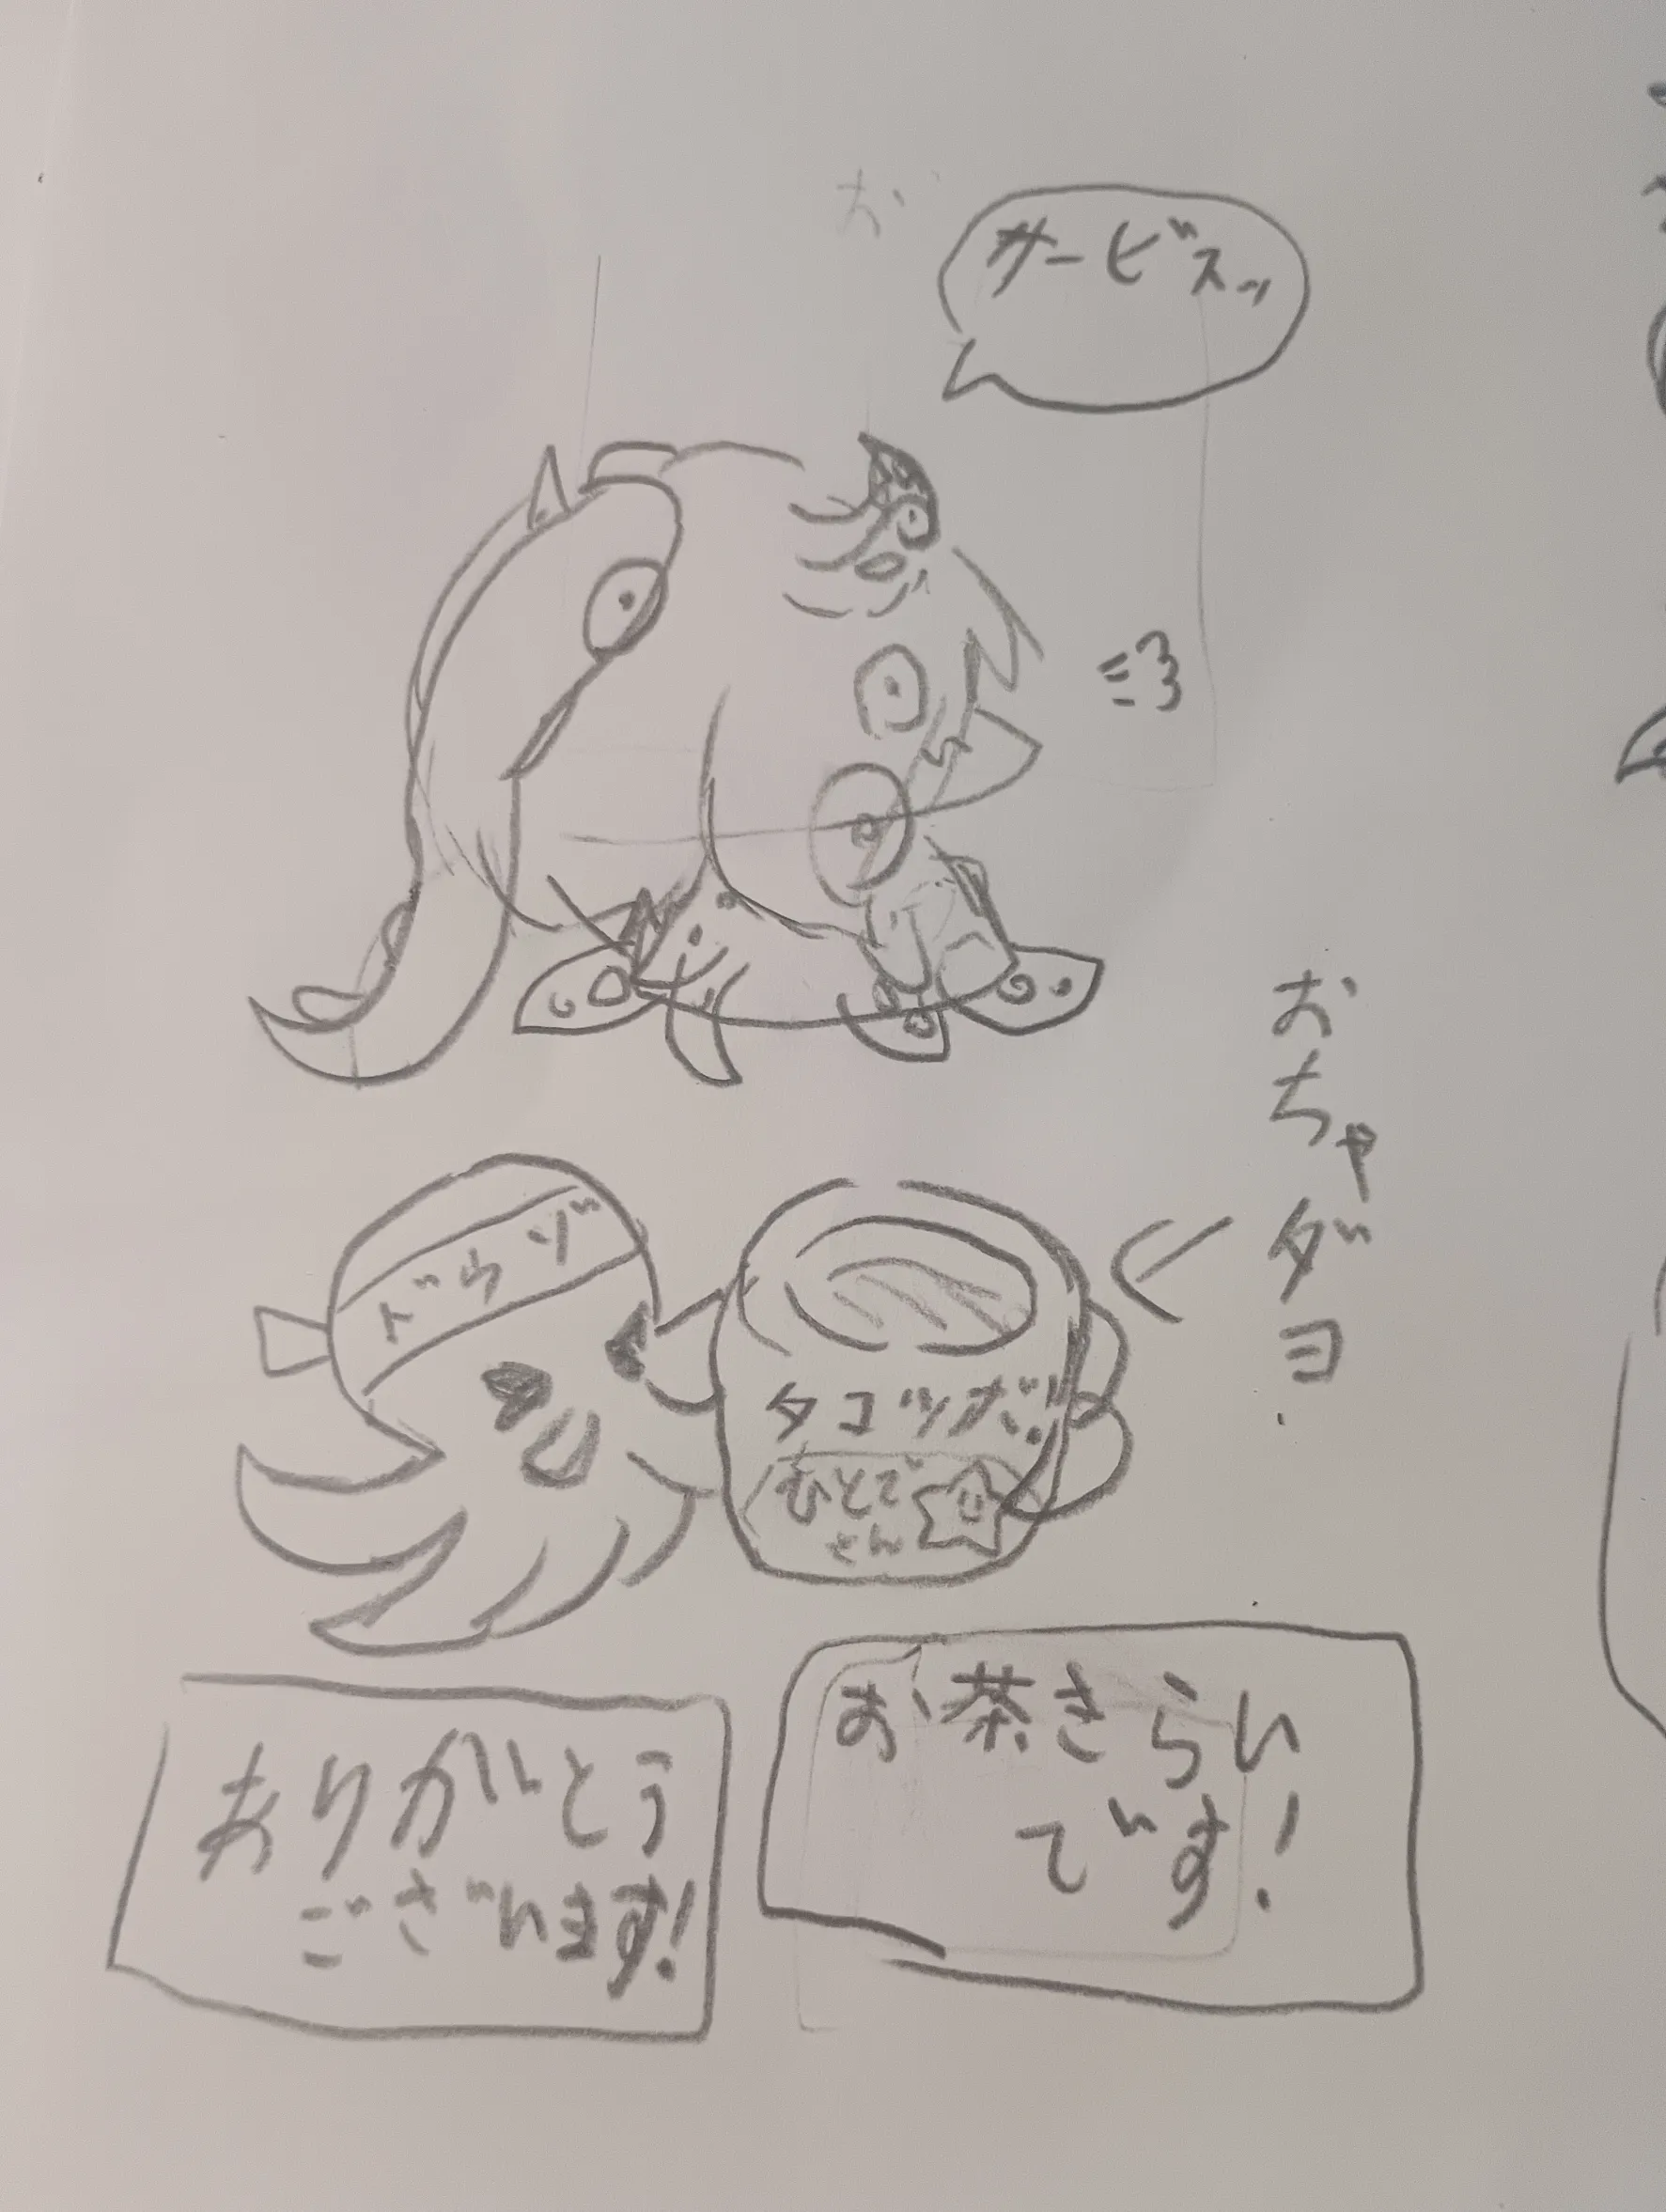 お
サービスッ
おちゃダヨ
ドウゾ
タコツボ!
ひとで
さん
お茶きらい
です!
ありがとう
ございます!